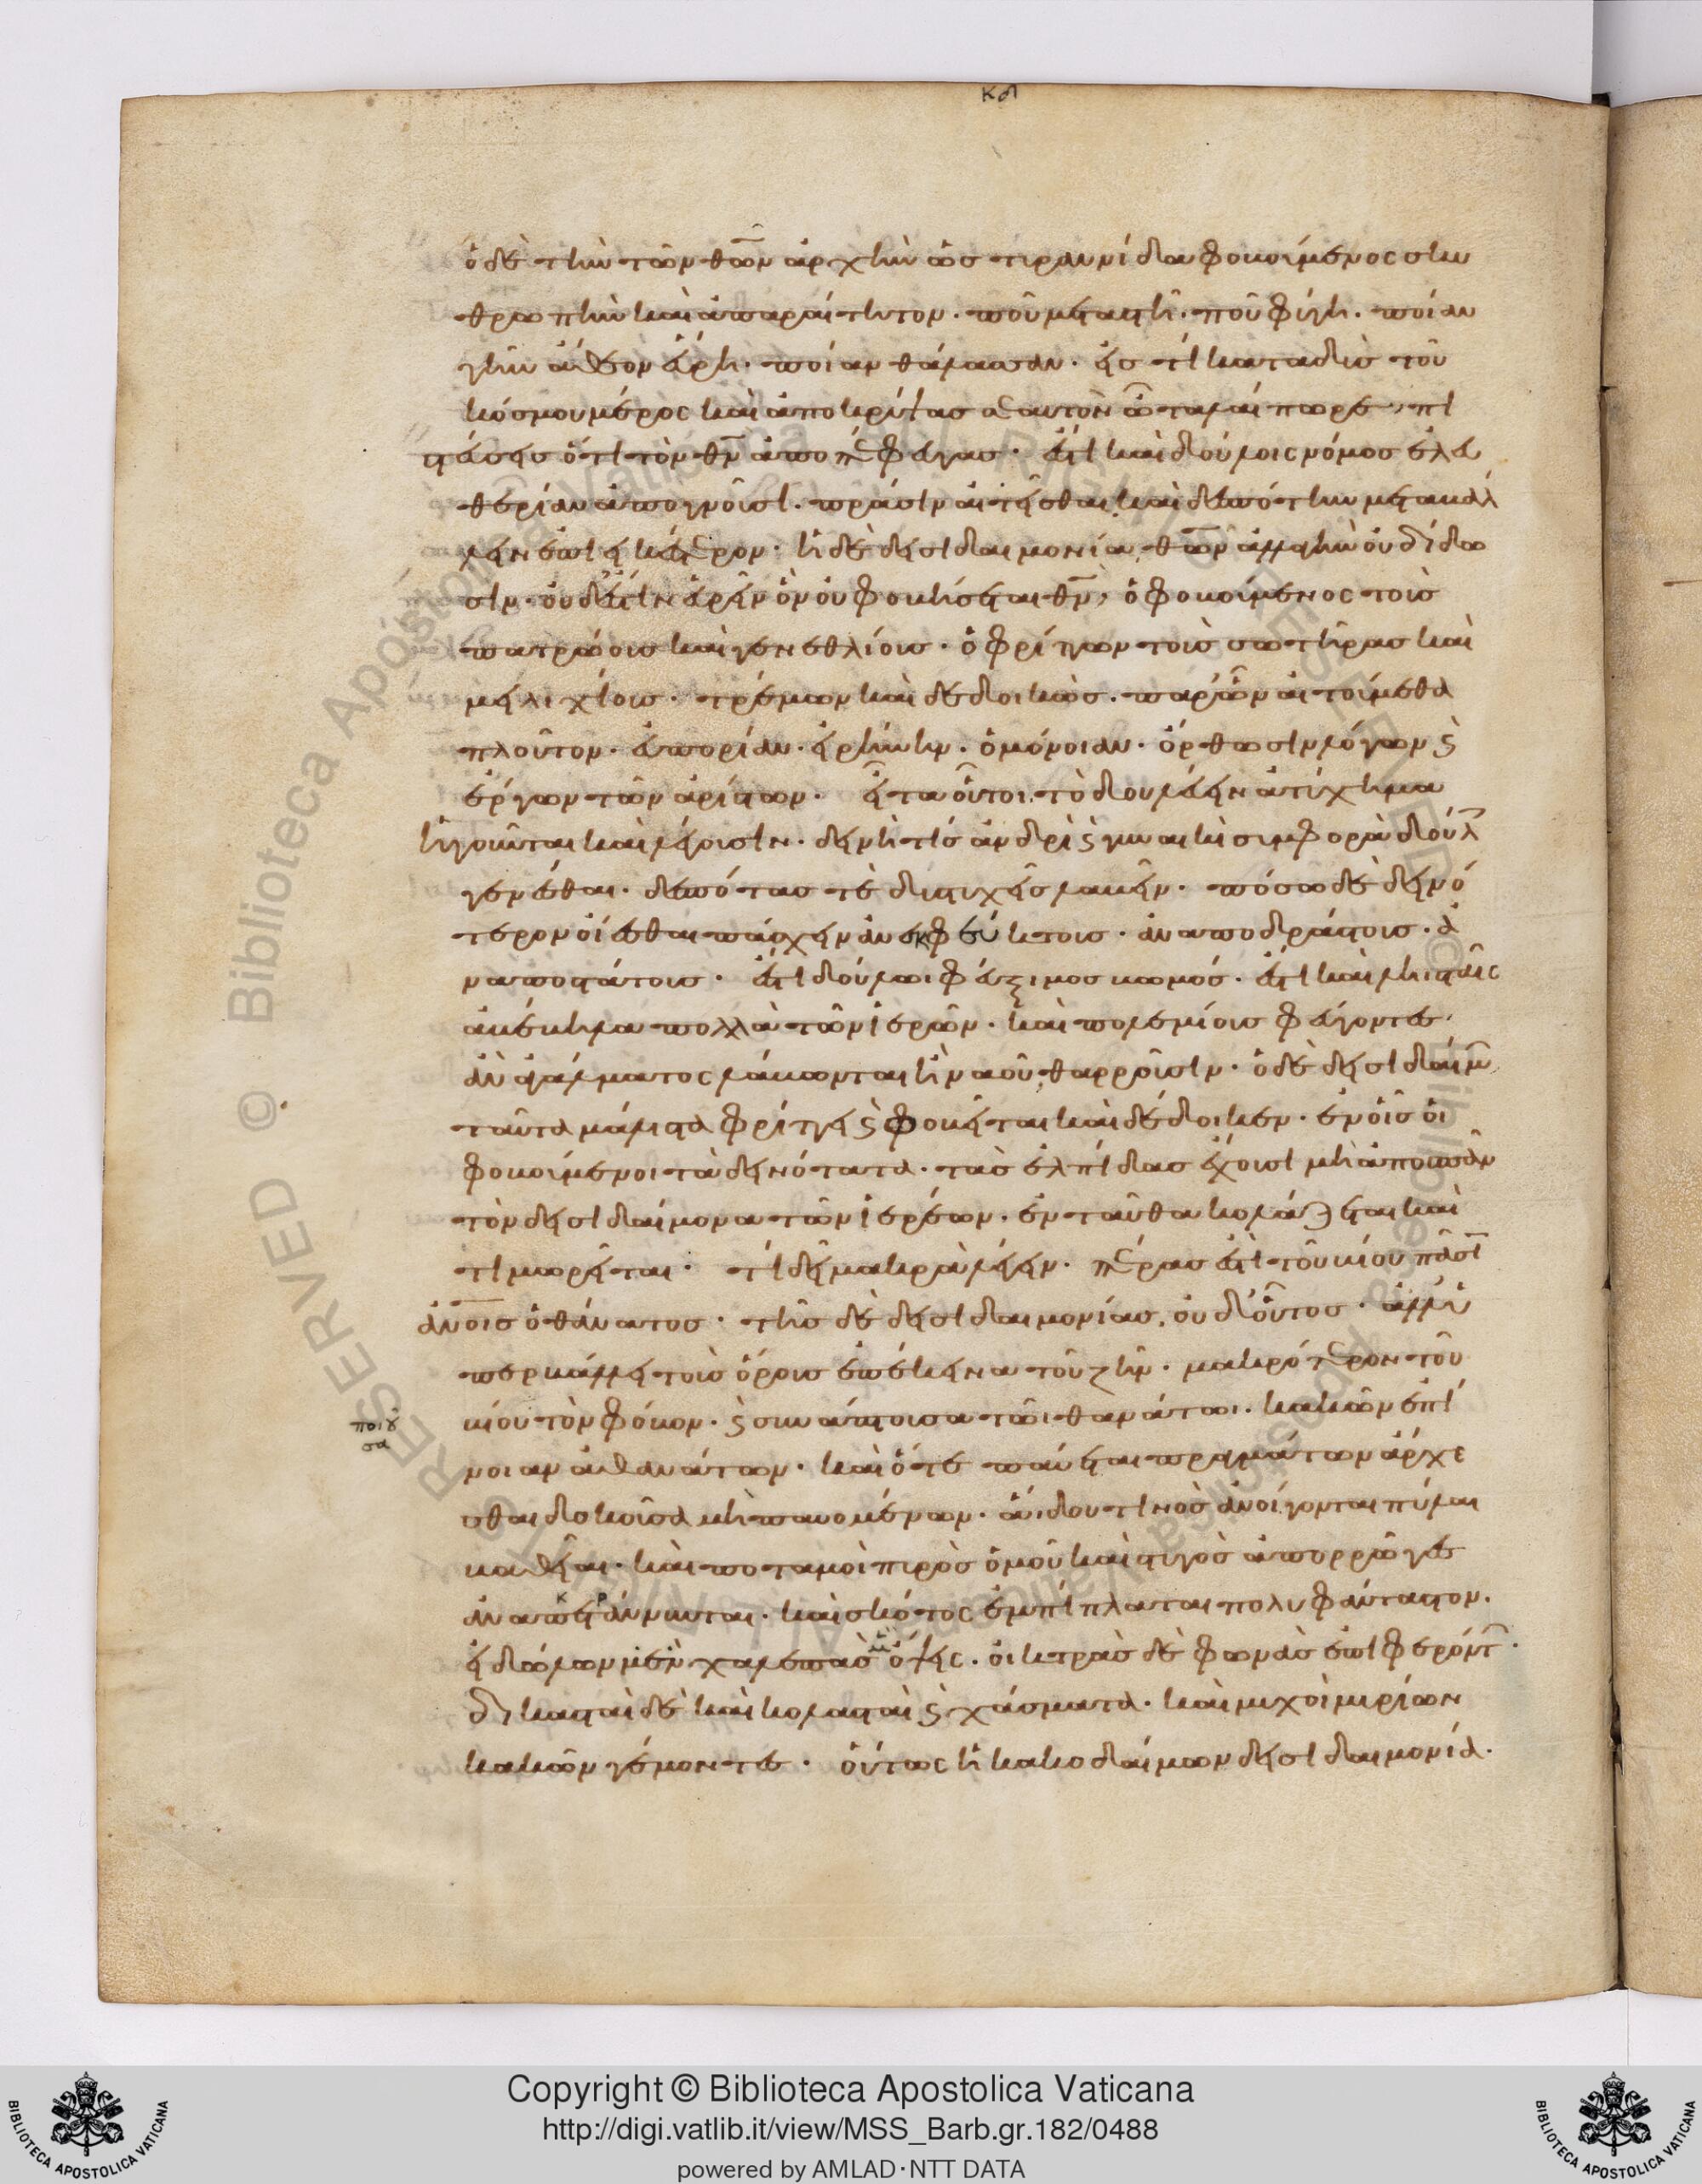 κδ
ὁ δὲ τὴν τῶν θῶν ἀρχὴν ὡς τυραννίδα φοβούμενος σκυ
θρωπὴν καὶ ἀπαραίτητον. ποῦ μεταστῆ. ποῦ φύγη. ποίαν
γῆν ἄθεον εὕρη. ποίαν θάλασσαν. εἰς τί καταδὺς τοῦ
κόσμου μέρος καὶ ἀποκρύψας σεαυτὸν ὦ ταλαίπωρε, πι
στεύσεις ὅτι τὸν θν ἀποπέφευγας. ἔστι καὶ δούλοις νόμος ἐλευ
θερίαν ἀπογνοῦσι. πρᾶσιν αἰτεῖσθαι καὶ δεσπότην μεταβάλ
λειν ἐπιεικέστερον. ἡ δὲ δεισιδαιμονία, θεῶν ἀλλαγὴν οὐ δίδω
σιν. οὐδ' ἔστιν εὑρεῖν ὃν οὐ φοβήσεται θν, ὁ φοβούμενος τοὺς
πατρώους καὶ γενεθλίους. ὁ φρίττων τοὺς σωτῆρας καὶ
μειλιχίους. τρέμων καὶ δεδοικώς. παρ' ὧν αἰτούμεθα
πλοῦτον. εὐπορίαν. εἰρήνην. ὁμόνοιαν. ὄρθωσιν λόγων ϗ
ἔργων τῶν ἀρίστων. εἶτα οὗτοι τὸ δουλεύειν ἀτύχημα
ἡγοῦνται καὶ λέγουσιν. δεινή τις ἀνδρὶ ϗ γυναικὶ συμφορὰ δούλ
γενέσθαι. δεσπότας τε δυστυχεῖς λαβεῖν. πόσω δὲ δεινό
τερον οἴεσθαι πάσχειν ἀνεκφεύκτοις. ἀναποδράστοις. ἀ
ναποστάτοις. ἔστι δούλωι φεύξιμος βωμός. ἔστι καὶ λησταῖς
ἀβέβηλα πολλὰ τῶν ἱερῶν. καὶ πολεμίους φεύγοντες,
ἂν ἀγάλματος λάβωνται ἢ ναοῦ, θαρροῦσιν. ὁ δὲ δεισιδαίμ
ταῦτα μάλιστα φρίττει ϗ φοβεῖται καὶ δέδοικεν. ἐν οἷς οἱ
φοβούμενοι τὰ δεινότατα. τὰς ἐλπίδας ἔχουσι μὴ ἀποσπᾶν
τὸν δεισιδαίμονα τῶν ἱερέων. ἐνταῦθα κολάζεται καὶ
τιμωρεῖται. τί δεῖ μακρὰ λέγειν. πέρας ἐστὶ τοῦ βίου πᾶσι
ἀνοις ὁ θάνατος. τῆς δὲ δεισιδαιμονίας, οὐδ' οὗτος. ἀλλ' ὑ
περβάλλει τοὺς ὅρους ἐπέκεινα τοῦ ζῆν. μακρότερον τοῦ
βίου τὸν φόβον. ϗ συνάπτουσα τῶι θανάτωι. κακῶν ἐπί
νοιαν ἀθανάτων. καὶ ὅτε παύεται πραγμάτων ἄρχε
σθαι δοκοῦσα μὴ παυομένων. ἅιδου τινὸς ἀνοίγονται πύλαι
βαθεῖαι. καὶ ποταμοὶ πυρὸς ὁμοῦ καὶ στυγὸς ἀπορρῶγες
ἀναπετάννυνται. καὶ σκότος ἐμπίπλαται πολυφάνταστον.
εἰδώλων μὲν χαλεπὰς ὄψεις. οἰκτρὰς δὲ φωνὰς ἐπιφερόντ.
δικασταὶ δὲ καὶ κολασταὶ ϗ χάσματα. καὶ μυχοὶ μυρίων
κακῶν γέμοντες. οὕτως ἡ κακοδαίμων δεισιδαιμονία.
ποιοῦ
σα
Copyright © Biblioteca Apostolica Vaticana
http://digi.vatlib.it/view/MSS_Barb.gr.182/0488
powered by AMLAD·NTT DATA